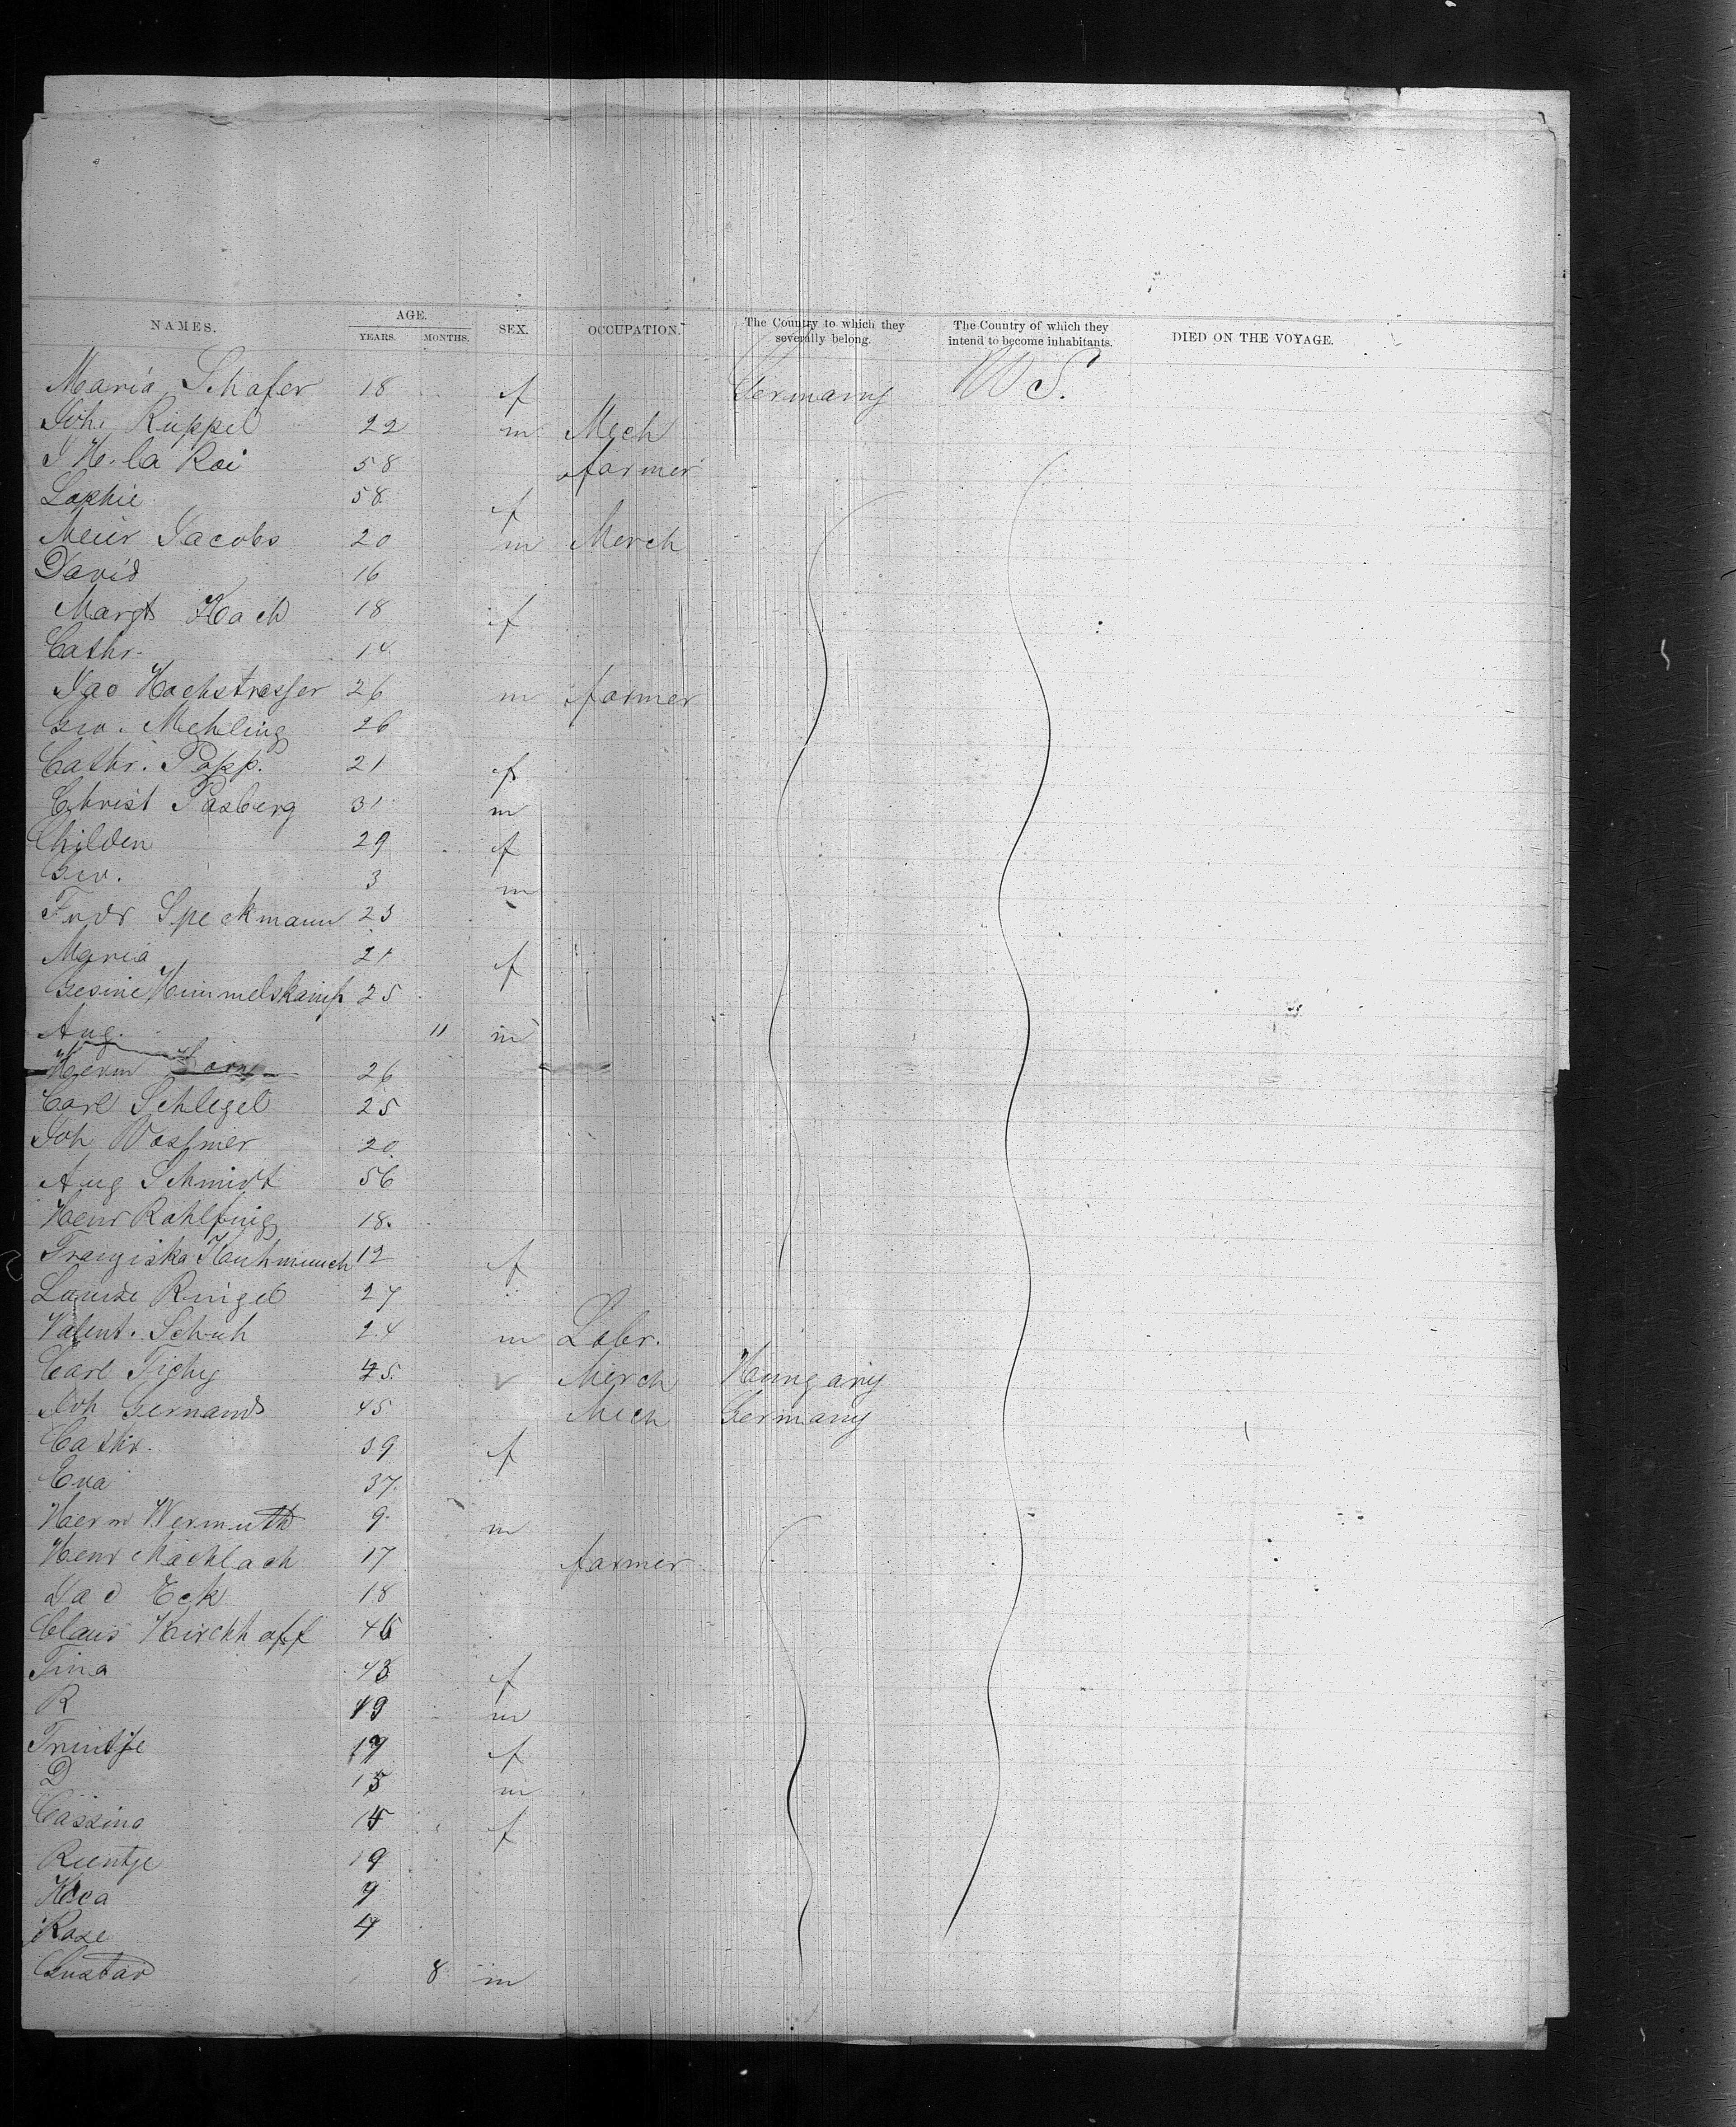 NAMES. AGE. YEARS. MONTHS. SEX. OCCUPATION. The Country to which they severally belong. The Country of which they intend to become inhabitants. DIED ON THE VOYAGE.
Maria Schafer 18 f Germany U S.
Joh. Ruppel 22 m Mech
J H. la Roi 58 farmer
Sophie 58 f
Meier Jacobs 20 m Merch
David 16
Margt Koch 18 f
Cathr. 14
Jac Hochstrasser 26 m farmer
Geo. Mehling 26
Cathr. Popp. 21 f
Christ Pasberg 31 m
Childen 29 f
Geo. 3 m
Fredr Speckmann 23
Maria 21 f
Gesine Himmelskamp 25
Aug. 11 m
Herm 26
Carl Schlegel 25
Joh Vossmer 20
Aug Schmidt 56
Henr Rohlfing 18.
Franziska 12 f
Louise Ringel 27
Valent. Schuh 24 m Labr.
Carl 45. Merch Hungary
Joh Gernand 45 Mech Germany
Cathr. 39 f
Eva 37.
Herm Wermuth 9 m
Henr Machlach 17 farmer
Jac Eck 18
Claus Kirchhoff 46
Tina 43 f
R 19 m
Trintje f
D 15 m
Cassina f
Rientje
9
Rose 4
Gustav 8 m